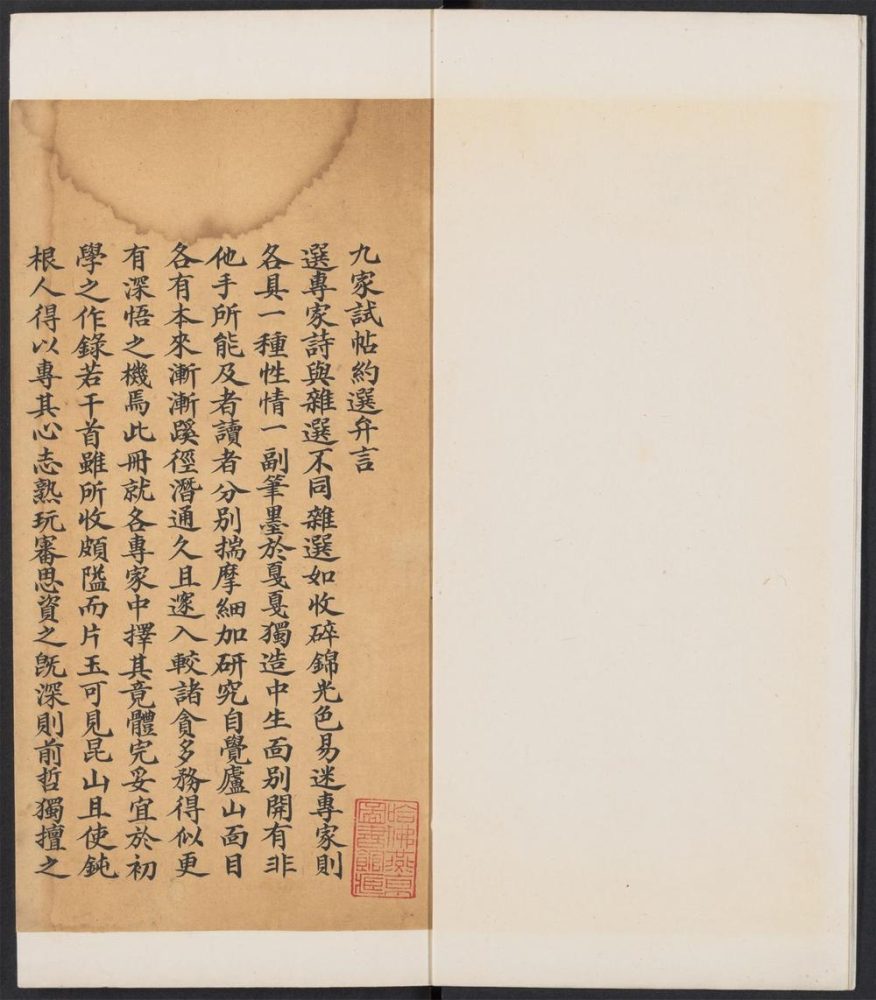 九家試帖約選弁言
選專家詩與雜選不同雜選如收碎錦光色易迷專家則
各具一種性情一副筆墨於戛戛獨造中生面別開有非
他手所能及者讀者分別揣摩細加研究自覺廬山面目
各有本來漸漸蹊徑潛通久且邃入較諸貪多務得似更
有深悟之機焉此冊就各專家中擇其竟體完妥宜於初
學之作錄若干首雖所收頗隘而片玉可見昆山且使鈍
根人得以專其心志熟玩審思資之既深則前哲獨擅之
哈佛燕京
圖書館藏